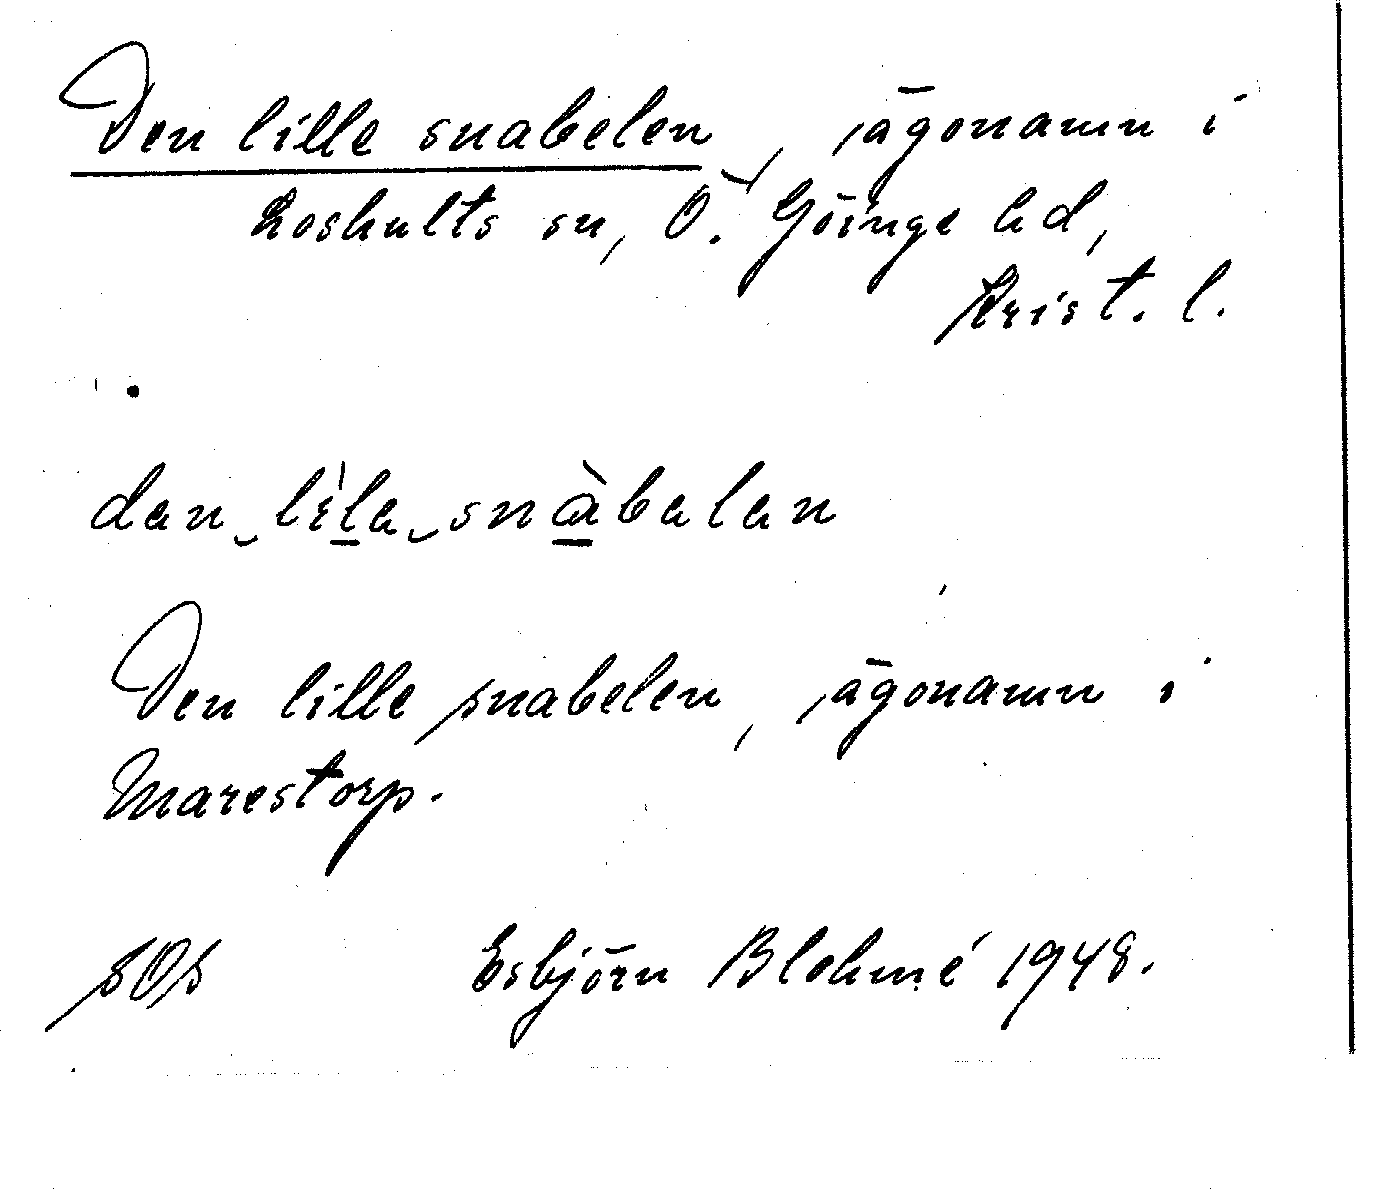 Den lille snabelen, ägonamn i
Loshults sn, Ö. Göinge hd,
Krist. l.
dan lila snàbalan
Den lille snabelen, ägonamn i
Marestorp.
Esbjörn Blohmé 1948.